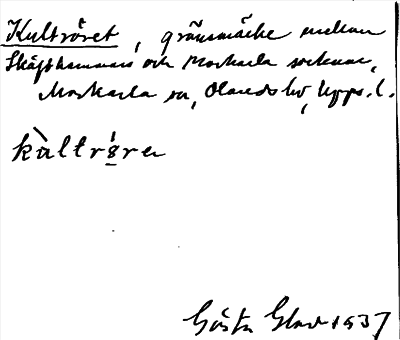 Kultröret, gränsmärke mellan
Skäfthammars och Morkarla socknar,
Morkarla sn, Olands hd, Upps. l.
kàltrǫ́ra
Gösta Glad 1937